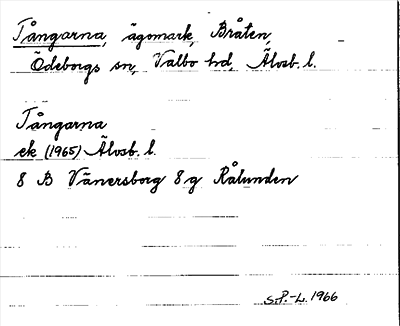 Tångarna, ägomark, Bråten,
Ödeborgs sn, Valbo hd, Älvsb. l.
Tångarna
ek (1965) Älvsb. l.
8 B Vänersborg 8 g Rålunden
S.P.-L. 1966